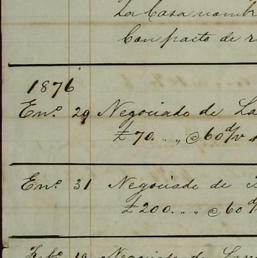 La Casa nomb
Con pacto de r
1876
En.º 29 Negociado de La
£70.. „ @ 60 d/v
En.º 31 Negociado de
£200... @ 60 d
Feb.º 19 Negociado de